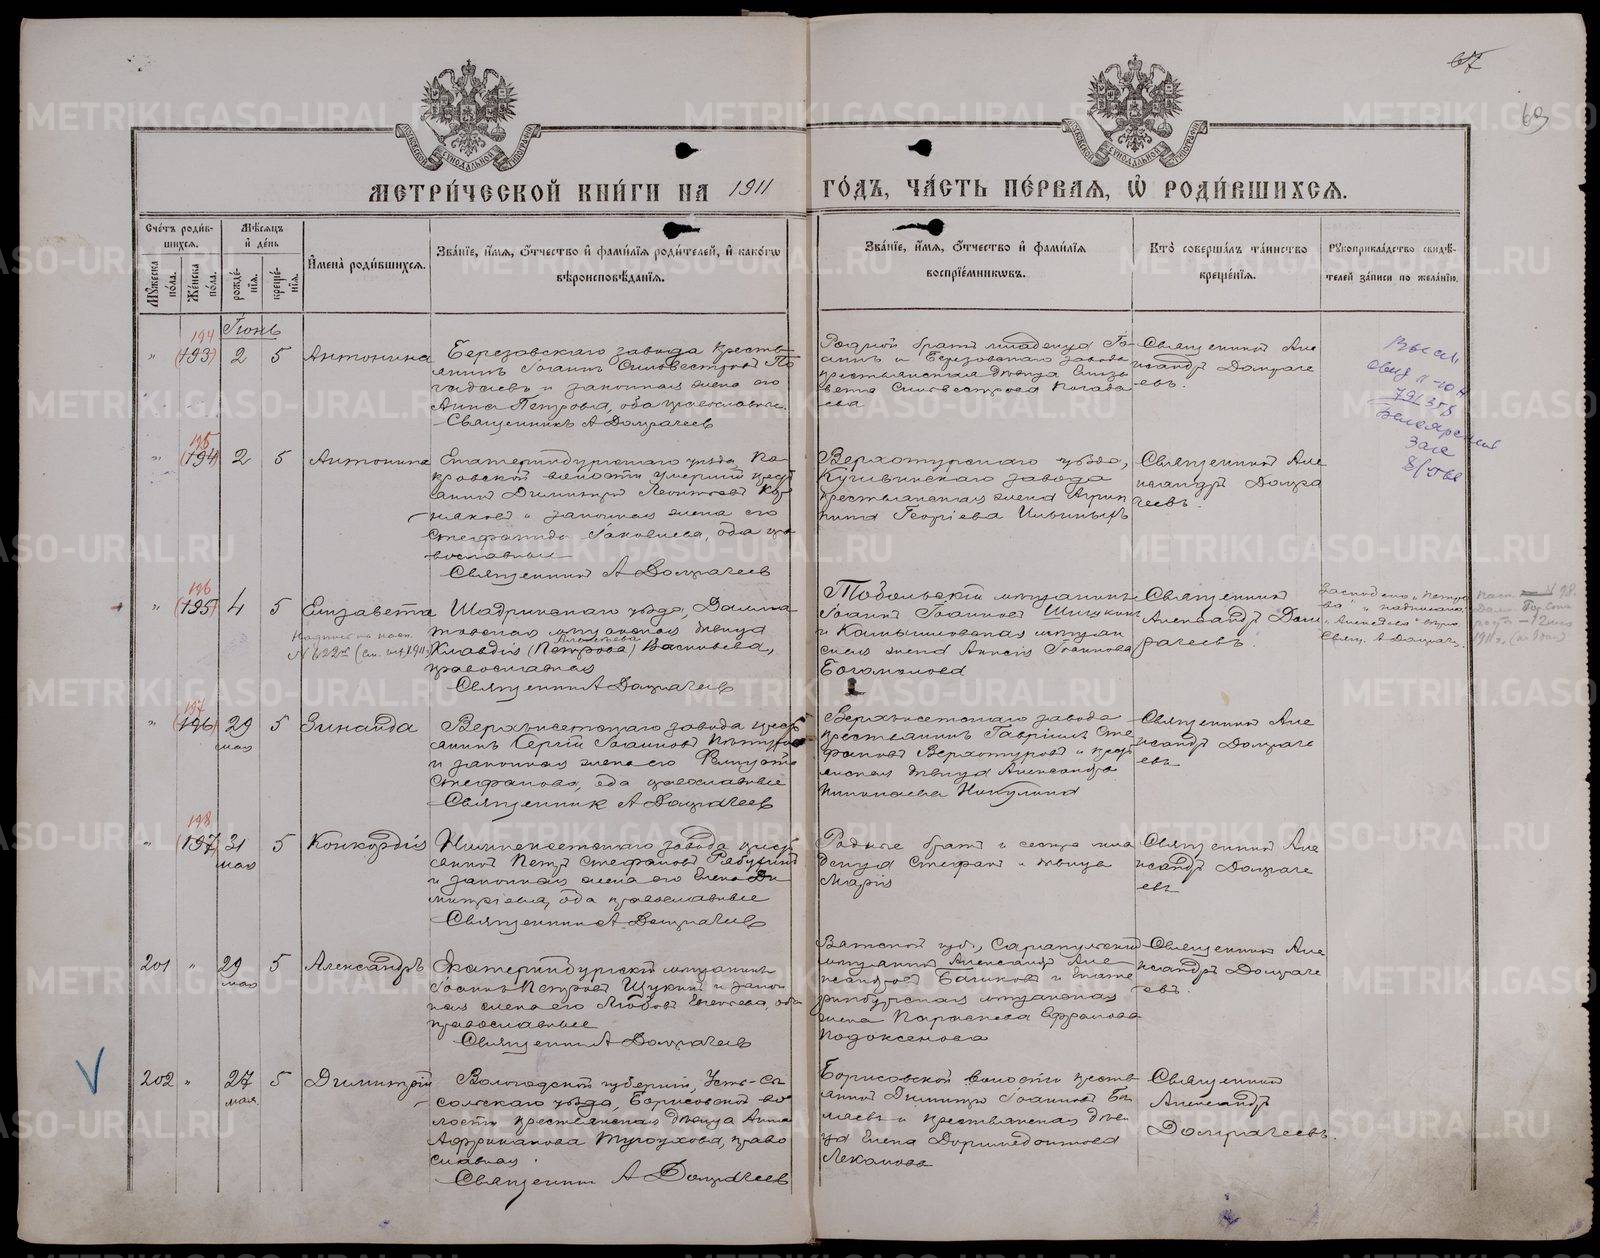 67
69
МЕТРИ́ЧЕСКОЙ КНИ́ГИ НА 1911 ГО́ДЪ, ЧА́СТЬ ПЕ́РВАЯ, Ѡ҆ РОДИ́ВШИХСЯ.
Сче́тъ роди́вшихся.
Му́жеска по́ла.
Же́нска по́ла.
Мѣ́сяцъ и҆ де́нь
рожде́нія.
креще́нія.
И҆мена̀ роди́вшихся.
Зва́ніе, и҆́мя, ѻ҆́тчество и҆ фами́лія роди́телей, и҆ како́гѡ
вѣроисповѣ́данія.
Зва́ніе, и҆́мя, ѻ҆́тчество и҆ фами́лія
воспріе́мникѡвъ.
Кто̀ соверша́лъ та́инство
креще́нія.
Рꙋкоприкла́дство свидѣ́телей за́писи по жела́нію.
Іюнь
194
(193) 2 5 Антонина
Березовскаго завода кресть-
янинъ Іоаннъ Силовестровъ По-
гадаевъ и законная жена его
Анна Петрова, оба православные.
Священникъ А Домрачеев
Родной братъ младенца Іо-
аннъ и Березовскаго завода
крестьянская дѣвица Елиза-
вета Силовестрова Погада-
ева
Священникъ Але
ксандръ Домраче
евъ.
195
(194) 2 5 Антонина
Екатеринбургскаго уѣзда, По-
кровской волости умершій крест
янинъ Димитрій Леонтьевъ
и законная жена его
Стефанида Іаковлева, оба пра-
вославные
Священникъ А Домрачеев
Верхотурскаго уѣзда,
Кушвинскаго завода
крестьянская жена
Георгіева Ильиныхъ
Священникъ Але
ксандръ Домра
чеевъ.
196
(195) 4 5 Елизавета
Шадринскаго уѣзда, Далма-
товская мѣщанская дѣвица
Клавдія (Петрова) Васильева,
православная
Священникъ А Домрачеев
Тобольскій мѣщанинъ
Іоаннъ Іоанновъ Шишкинъ
и Камышловская мѣщан
ская жена Анисія Іоаннова
Богомолова
Священникъ
Александръ Дом
рачеевъ.
197
(196) 29 мая 5 Зинаида
Верхъисетскаго завода крест
янинъ Сергій Іоанновъ
и законная жена его
Стефанова, оба православные
Священникъ А Домрачеев
Верхъисетскаго завода
крестьянинъ Гавріилъ Сте
фановъ Верхотуровъ и крест
янская дѣвица Александра
Николаева Никулина
Священникъ Але
ксандръ Домраче
евъ.
198
(197) 31 мая 5 Конкордія
Нижнеисетскаго завода крест
янинъ Петръ Стефановъ Рябухинъ
и законная жена его Елена Ди
митріева, оба православные
Священникъ А Домрачеев
Родные братъ и сестра мла
денца Стефанъ и дѣвица
Марія
Священникъ Але
ксандръ Домраче
евъ
201 29 мая 5 Александръ
Екатеринбургскій мѣщанинъ
Іоаннъ Петровъ Щукинъ и закон
ная жена его Любовь, оба
православные
Священникъ А Домрачеев
Вятской губ., Сарапульскій
мѣщанинъ Александръ Але
ксандровъ Башковъ и Екате
ринбургская мѣщанская
жена Параскева Ефремова
Подоксенова
Священникъ Але
ксандръ Домраче
евъ.
202 27 мая 5 Димитрій
Вологодской губерніи, Усть-Сы
сольскаго уѣзда, Борисовской во
лости крестьянская дѣвица Анна
Африканова, право
славная.
Священникъ А Домрачеев
Борисовской волости кресть
янинъ Димитрій Іоанновъ Бѣ
ляевъ и крестьянская дѣви
ца Елена Доримедонтова
Лекомова
Священникъ
Александръ
Домрачеевъ.